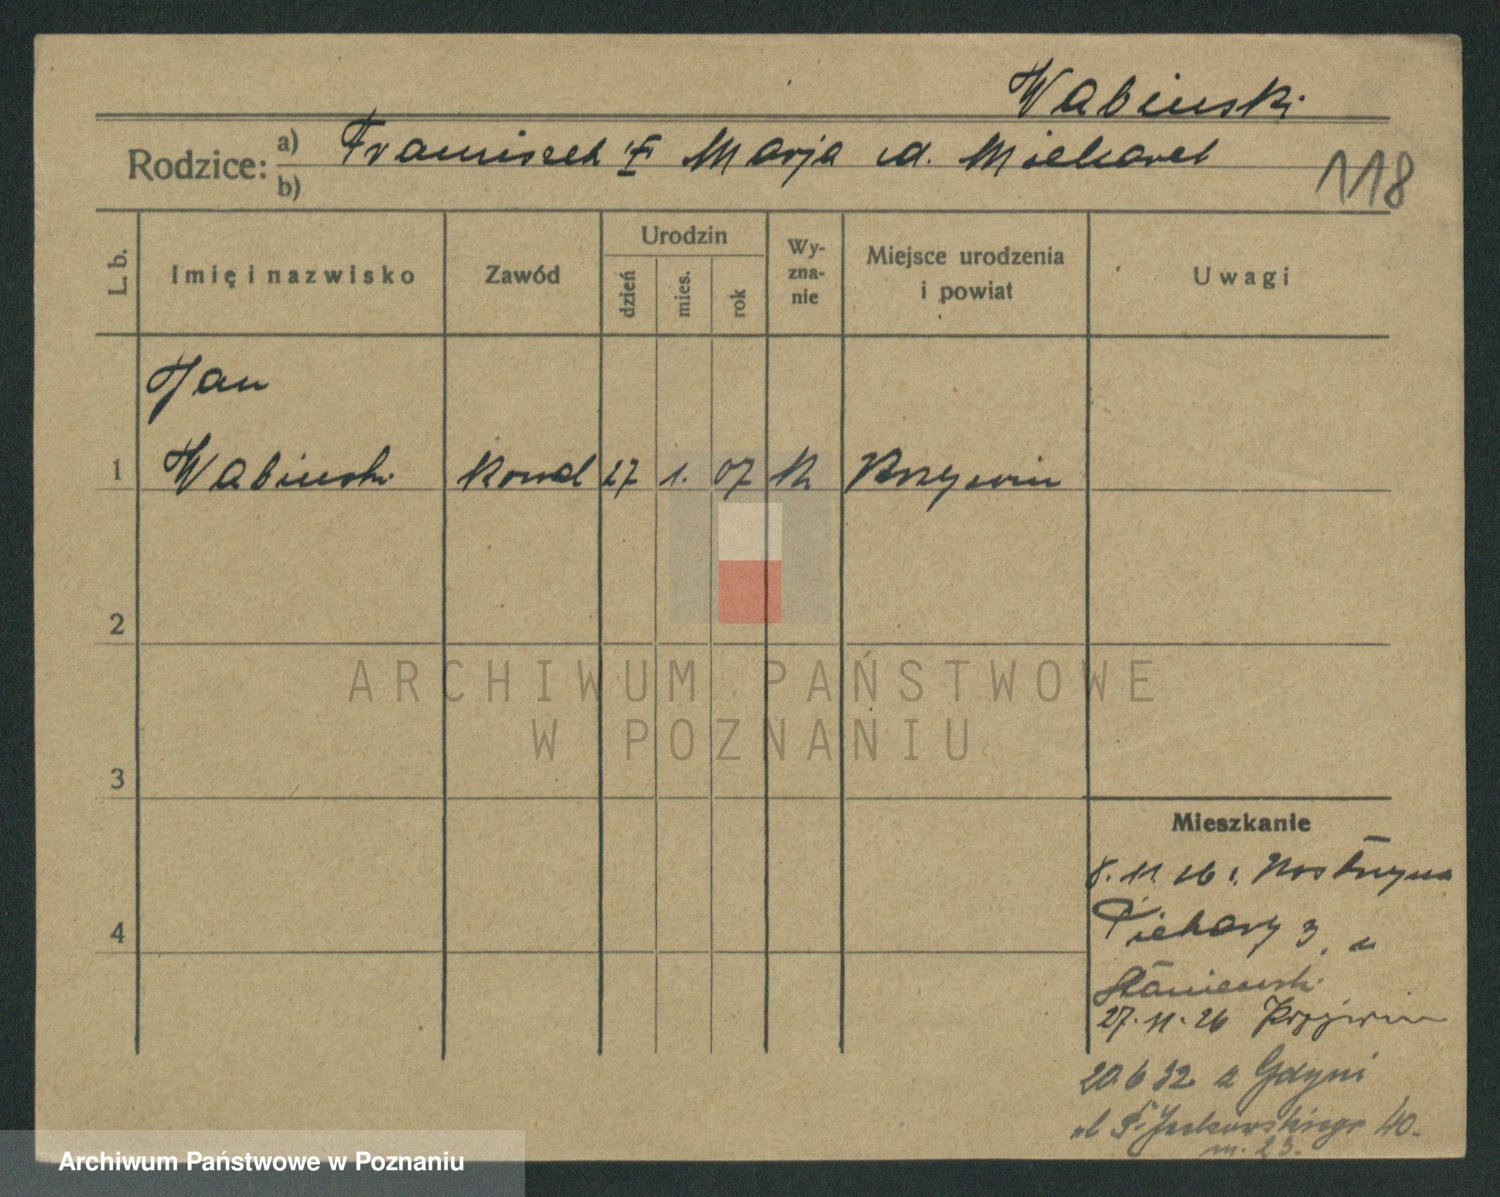 Wabinski
Rodzice: a) Franciszek Marja d. Miekarek
b)
118
L. b.
Imię i nazwisko
Zawód
Urodzin
dzień
mies.
rok
Wy-
zna-
nie
Miejsce urodzenia
i powiat
Uwagi
Jan
1 Wabinski kowal 27 1. 07 k Krzywiń
2
3
4
ARCHIWUM PAŃSTWOWE
W POZNANIU
Mieszkanie
8. 11. 26 Kostrzyna
Piekary 3, u
Staniewski
27. 11. 26 Krzywiń
20.6 32 z Gdyni
ul Jackowskiego 40.
m. 23.
Archiwum Państwowe w Poznaniu